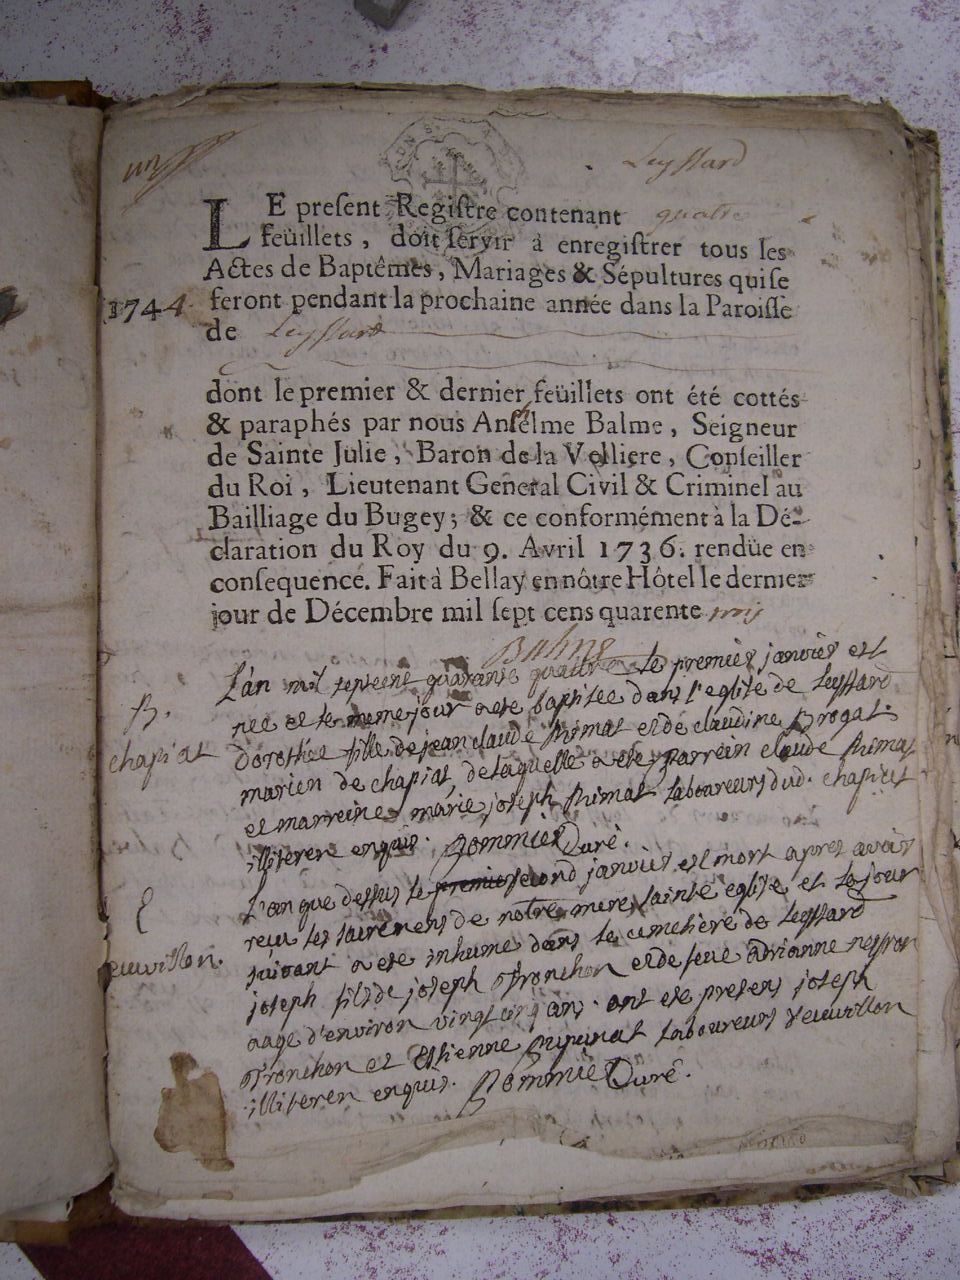 Leyssard
LE present Registre contenant quatre
feüillets, doit servir à enregistrer tous les
Actes de Baptêmes, Mariages & Sépultures qui se
1744 feront pendant la prochaine année dans la Paroisse
de Leyssard
dont le premier & dernier feüillets ont été cottés
& paraphés par nous Anthelme Balme, Seigneur
de Sainte Julie, Baron de la Velliere, Conseiller
du Roi, Lieutenant General Civil & Criminel au
Bailliage du Bugey; & ce conformément à la Dé-
claration du Roy du 9. Avril 1736. rendüe en
consequence. Fait à Bellay en nôtre Hôtel le dernier
jour de Décembre mil sept cens quarente trois
Balme
L'an mil sepcent quarante quatre le premier janvier est
B. née et le meme jour a ete baptisee dans l'eglise de Leyssard
chapiat Dorothee fille de jean claude et de claudine Brogat
marien de chapiat, de laquelle a ete parrein claude
et marreine marie joseph laboureurs dud. chapiat
illiteren enquis. Curé.
L'an que dessus le premier second janvier est mort apres avoir
reçu les sacremens de notre mere sainte eglise et le jour
suivant a ete inhumé dans le cimetiere de Leyssard
joseph fils de joseph et de feue adrianne
aagé d'environ vingt cinq ans. ont ete presens joseph
et Estienne laboureurs
illiteren enquis. Curé.